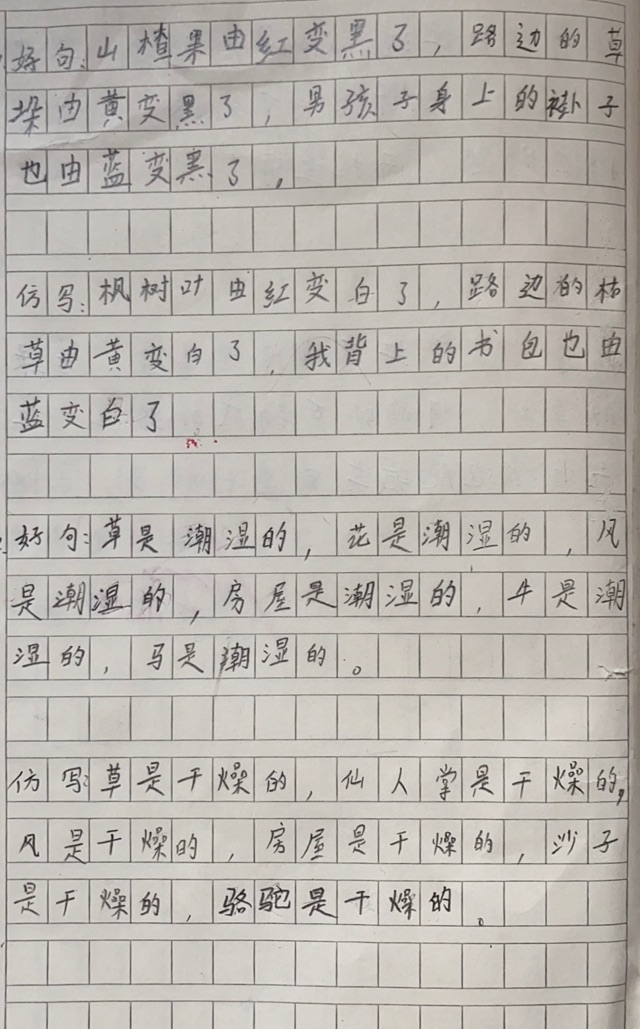 好句:山楂果由红变黑了，路边的草
垛由黄变黑了，男孩子身上的褂子
也由蓝变黑了，
仿写:枫树叶由红变白了，路边的枯
草由黄变白了，我背上的书包也由
蓝变白了
好句:草是潮湿的，花是潮湿的，风
是潮湿的，房屋是潮湿的，牛是潮
湿的，马是潮湿的。
仿写:草是干燥的，仙人掌是干燥的，
风是干燥的，房屋是干燥的，沙子
是干燥的，骆驼是干燥的。